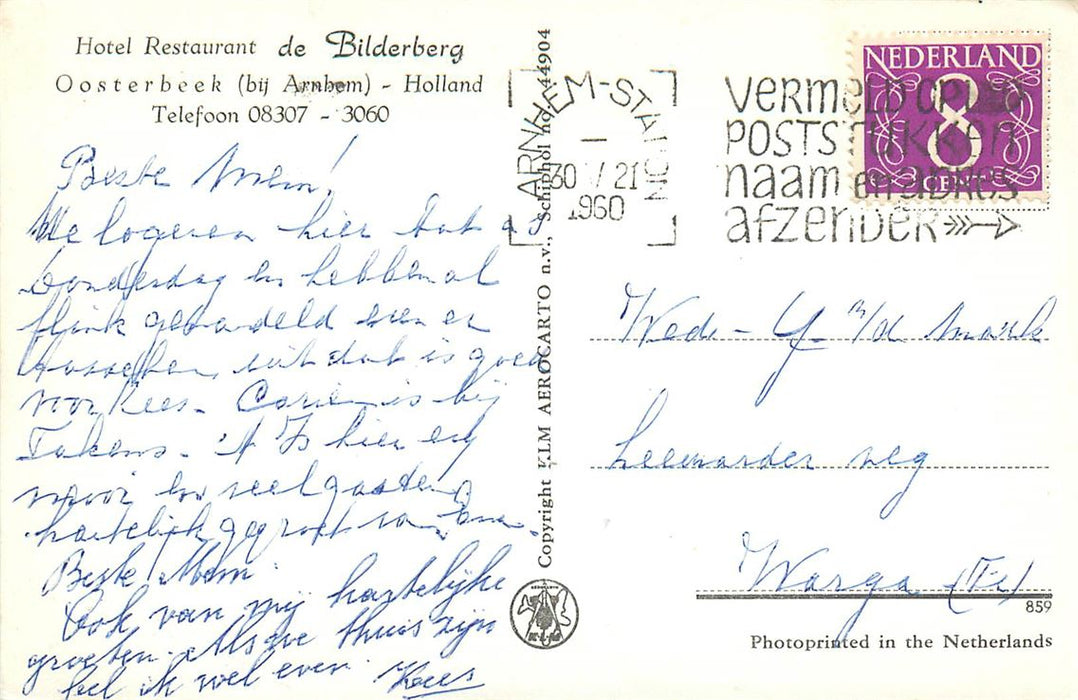 Hotel Restaurant de Bilderberg
Oosterbeek (bij Arnhem) - Holland
Telefoon 08307 - 3060
Beste Mem!
We logeren hier tot as
Donderdag en hebben al
flink gewandeld even er
tusschen uit dat is goed
voor Kees. Corrie is bij
Takens. 't Is hier erg
mooi en veel gasten
hartelijk gegroet van
Beste Mem.
Ook van mij hartelijke
groeten. Als we thuis zijn
bel ik wel even. Kees
Copyright KLM AEROCARTO n.v., Schiphol no. 44904
K.L.M
ARNHEM-STATION
30 V 21
1960
VERMELD OP UW
POSTSTUKKEN
naam en adres
afzender
NEDERLAND
8
CENT
Wede - Y v/d Marck
Leeuwarder weg
Warga (Fr)
859
Photoprinted in the Netherlands